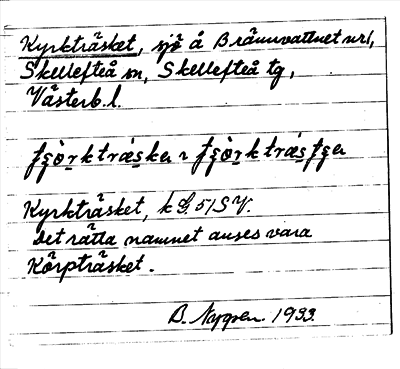 Kyrkträsket, sjö å Brännvattnet url,
Skellefteå sn, Skellefteå tg,
Västerb. l.
Kyrkträsket, k G. 51 SV.
Det rätta namnet anses vara
Körpträsket.
B. Nygren. 1933.